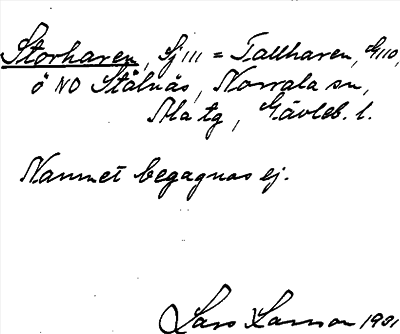 Storharen, Sj III = Tallharen, G110,
ö NO Stålnäs, Norrala sn,
Ala tg, Gävleb. l.
Namnet begagnas ej.
Lars Larsson 1931